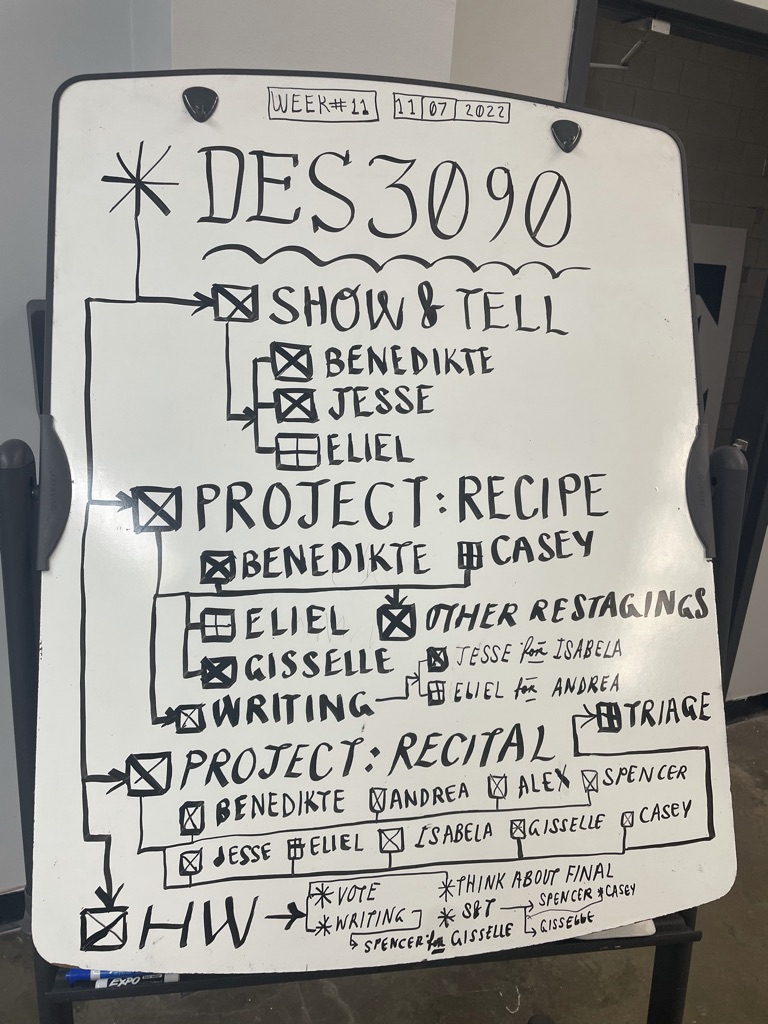 WEEK#11 11 07 2022
DES3090
SHOW & TELL
BENEDIKTE
JESSE
ELIEL
PROJECT: RECIPE
BENEDIKTE CASEY
ELIEL OTHER RESTAGINGS
GISSELLE JESSE for ISABELA
WRITING ELIEL for ANDREA
TRIAGE
PROJECT: RECITAL
BENEDIKTE ANDREA ALEX SPENCER
JESSE ELIEL ISABELA GISSELLE CASEY
HW
VOTE THINK ABOUT FINAL
WRITING S&T SPENCER & CASEY
SPENCER for GISSELLE GISSELLE
EXPO